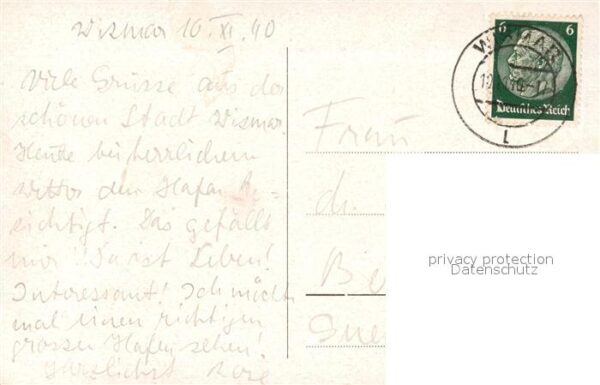 Wismar 10. XI. 40
Viele Grüsse aus der
schönen Stadt Wismar.
Heute bei herrlichem
Wetter den Hafen be-
sichtigt. Das gefällt
mir! Da ist Leben!
Interessant! Ich möcht
mal einen richtigen
grossen Hafen sehen!
Herzlichst
Frau
dr.
6 6
WISMAR
Deutsches Reich
1
privacy protection
Datenschutz